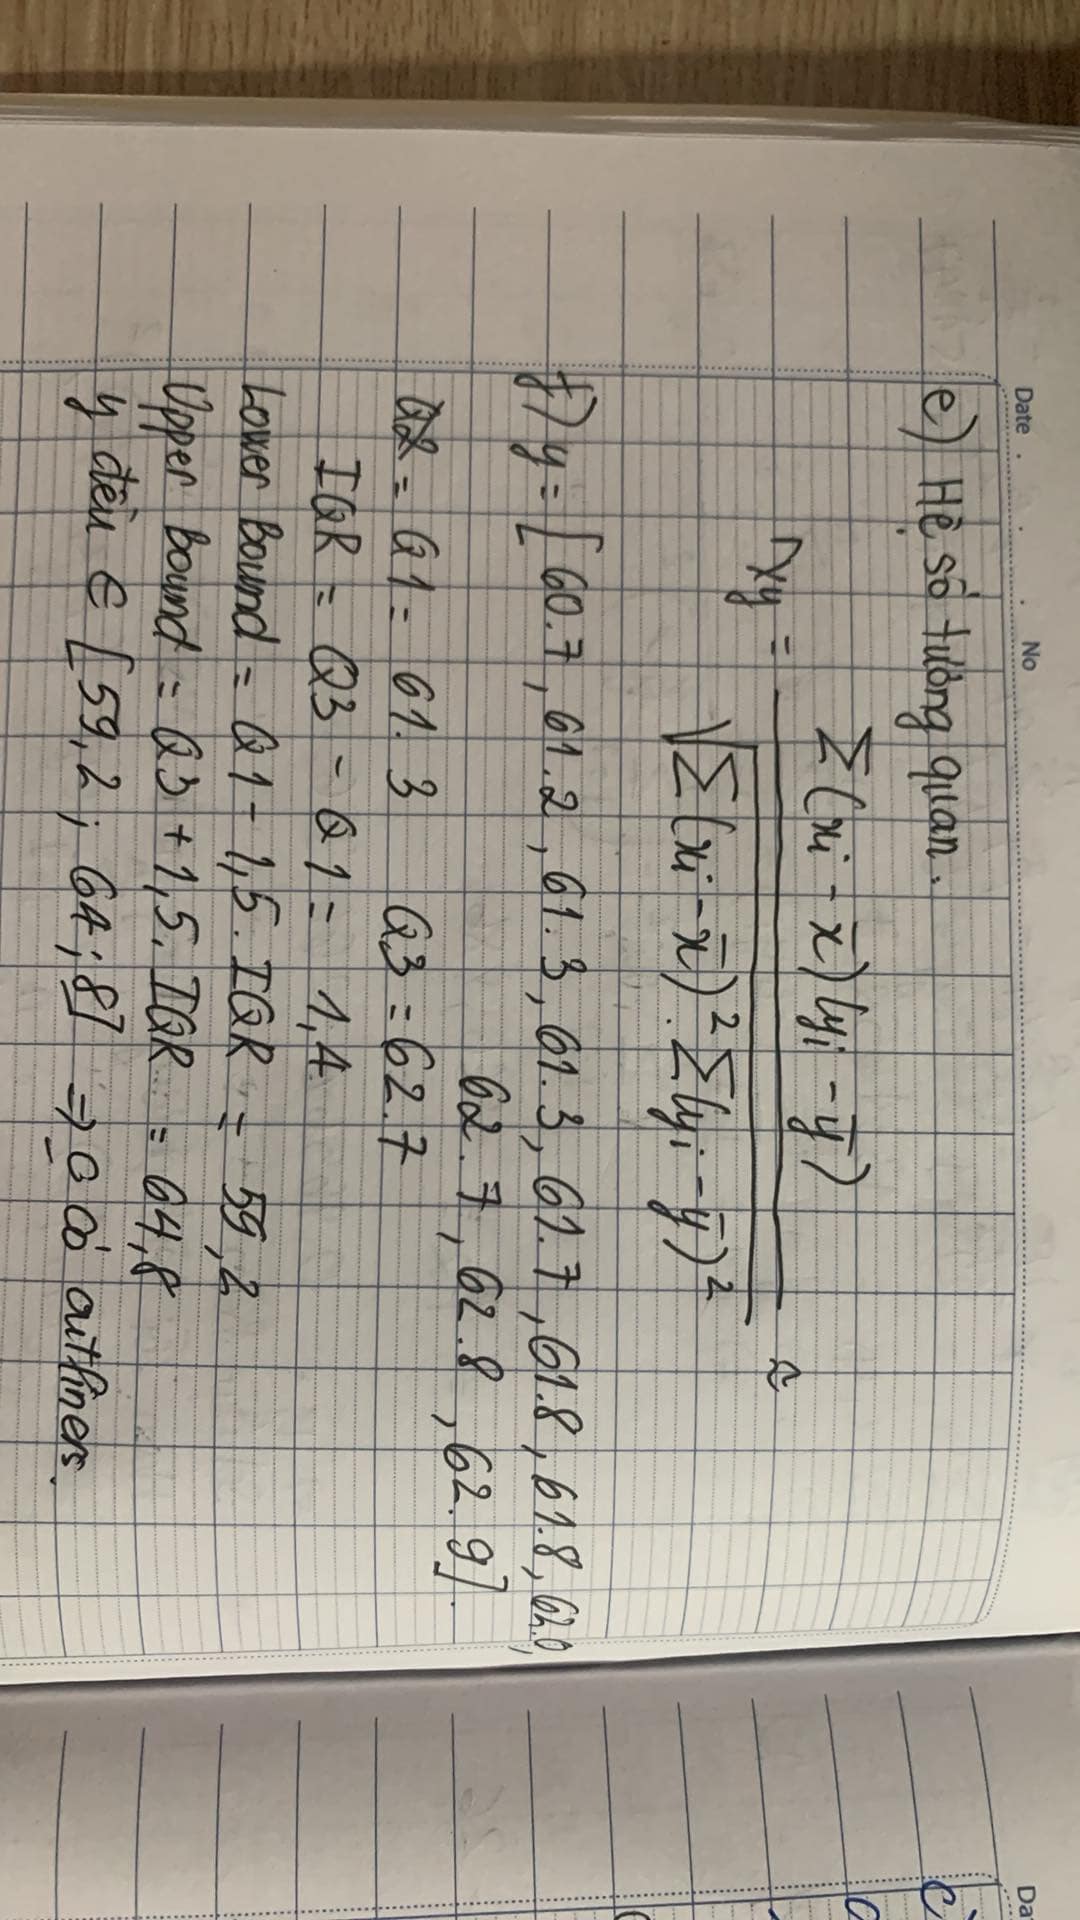 Date . . . No
Da
e) Hệ số tương quan.
rxy = Σ(xi - x̄)(yi - ȳ) / √Σ(xi - x̄)². Σ(yi - ȳ)² ≈
f) y = [60.7, 61.2, 61.3, 61.3, 61.7, 61.8, 61.8, 62.0,
62.7, 62.8, 62.9].
Q2 = Q1 = 61.3 Q3 = 62.7
IQR = Q3 - Q1 = 1,4
Lower Bound = Q1 - 1,5. IQR = 59,2
Upper Bound = Q3 + 1,5. IQR = 64,8
y đều ∈ [59,2 ; 64;8] => o có outfiners.